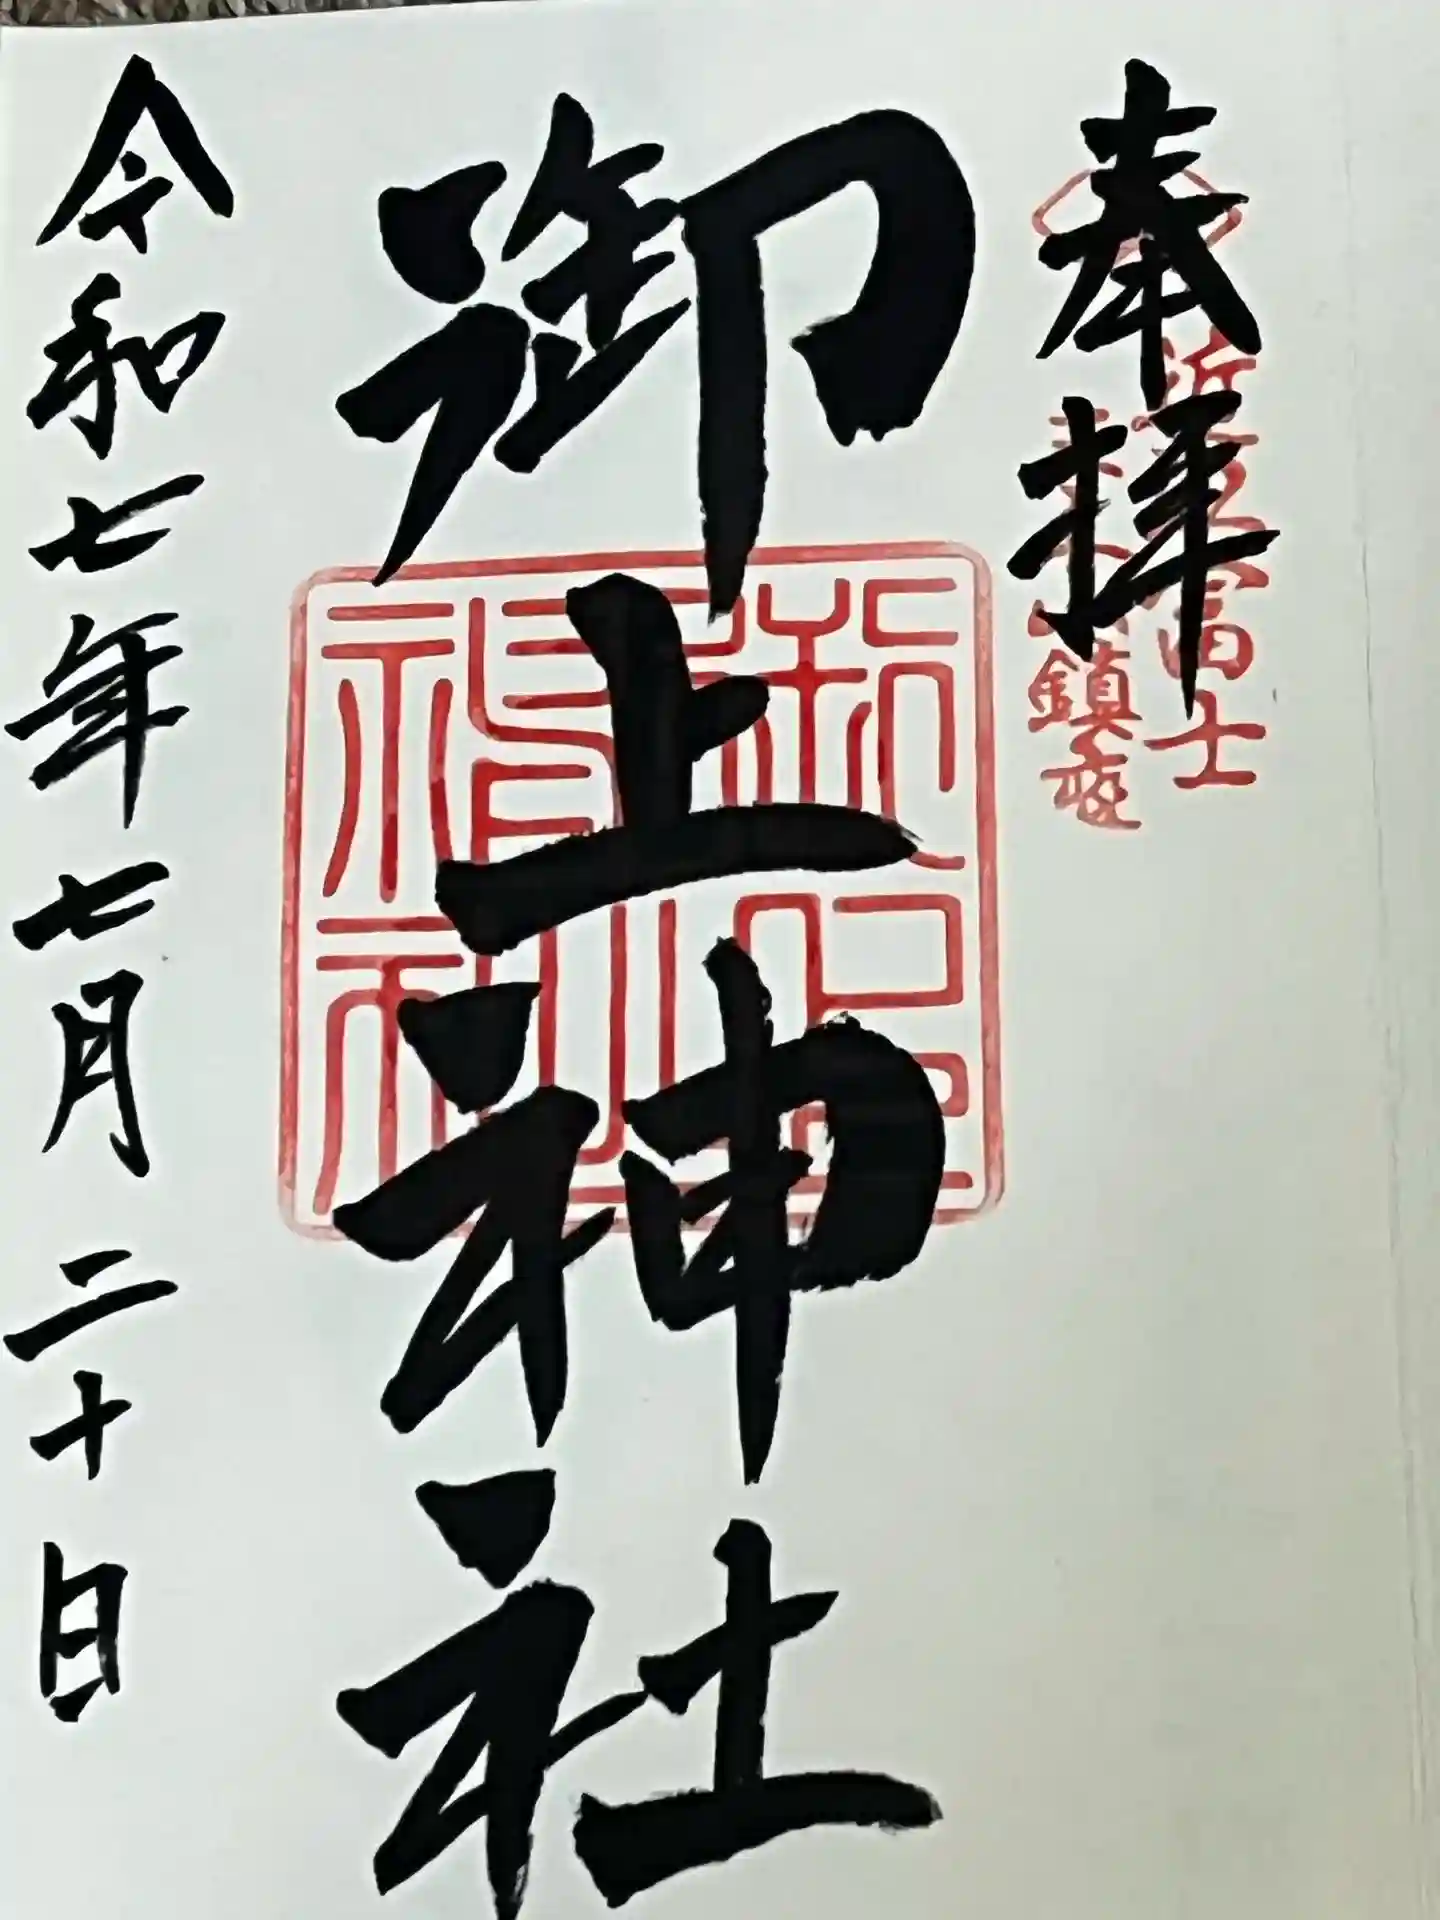 奉拝
近江富士
三上山鎮座
御上神社
令和七年七月二十日